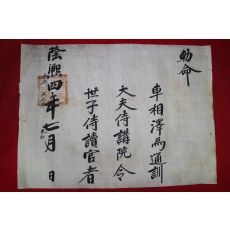 勅命
車相澤爲通訓
大夫侍講院令
世子侍讀官者
隆熙四年七月 日